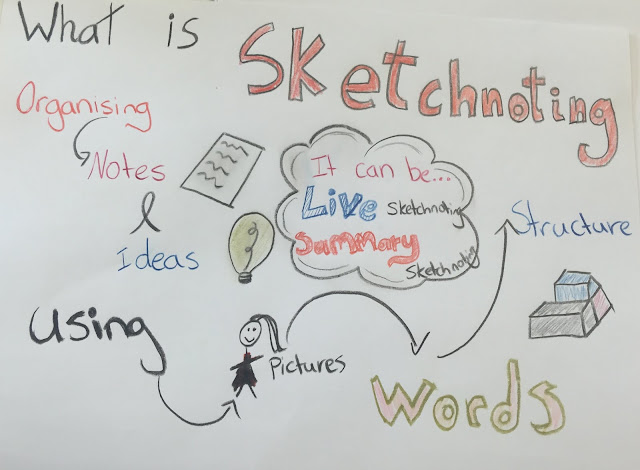 What is Sketchnoting
Organising
Notes
&
Ideas
It can be...
Live Sketchnoting
Summary
Sketchnoting
Using
Pictures
Words
Structure